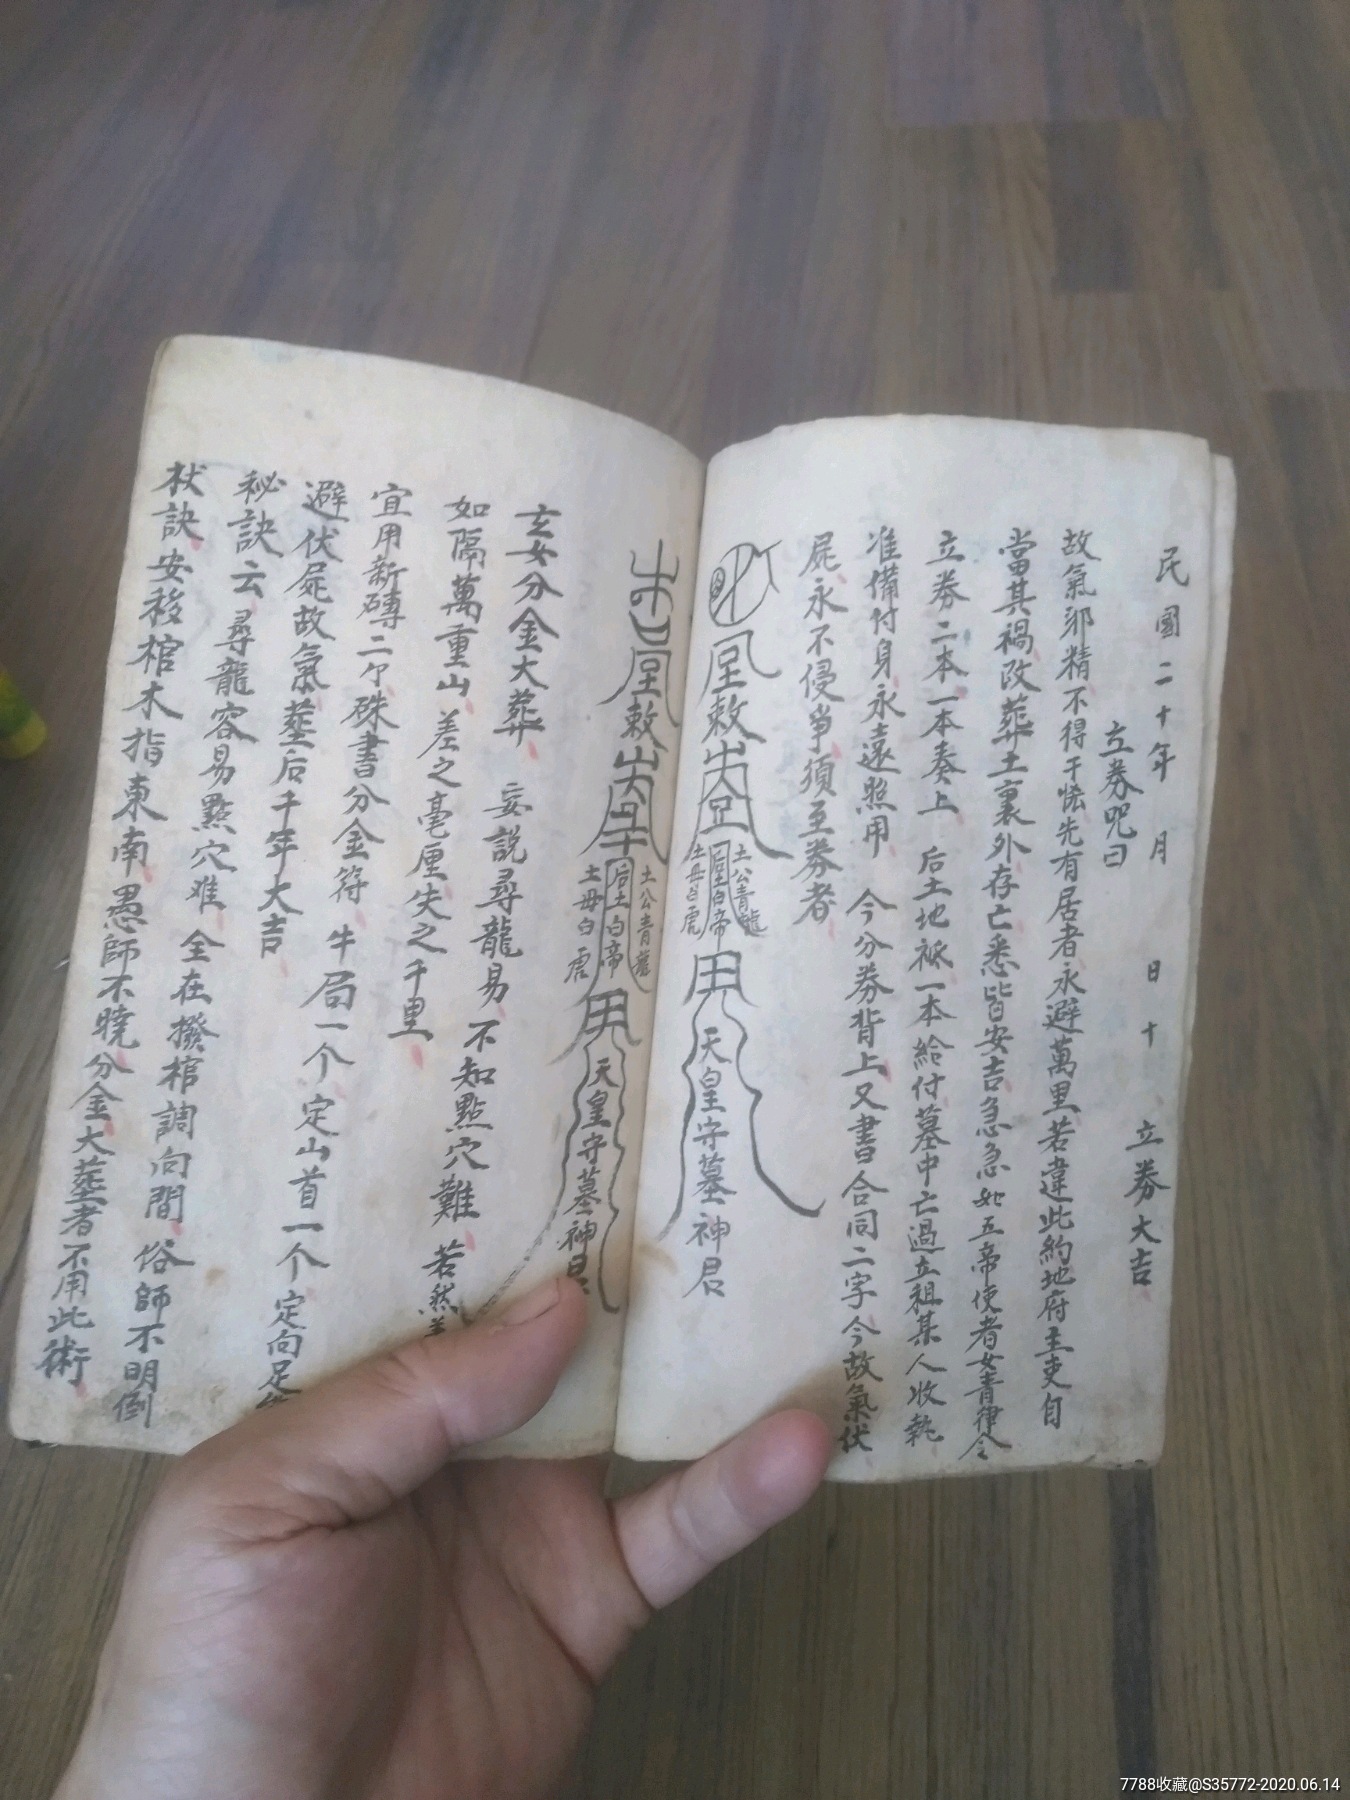 民國二十年 月 日 十 立券大吉
立券咒曰
故氣邪精不得干怪先有居者永避萬里若違此約地府主吏自
當其禍改葬土裏外存亡悉皆安吉急急如五帝使者女青律令
立券二本一本奏上 后土地祇一本給付墓中亡過立祖某人收執
准備付身永遠照用 今分券背上又書合同二字今故氣伏
屍永不侵爭須至券者
敕
土公青龍
白帝
土母白虎
用
天皇守墓神君
敕
土公青龍
后土白帝
土母白虎
用
天皇守墓神君
玄女分金大葬 妄説尋龍易 不知點穴難 若然差
如隔萬重山 差之毫厘失之千里
宜用新磚二个硃書分金符 牛局一个定山首一个定向足
避伏屍故氣塟后千年大吉
秘訣云 尋龍容易點穴难 全在撥棺調向間 俗師不明倒
杖訣安移棺木指東南愚師不曉分金大塟者不用此術
7788收藏@S35772-2020.06.14